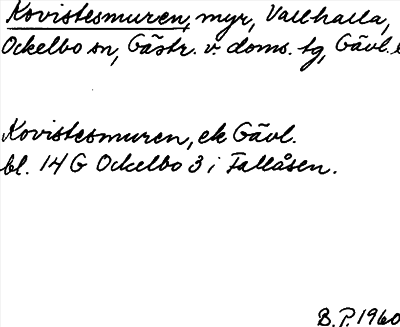 Kovistesmuren, myr, Vallhalla,
Ockelbo sn, Gästr. v. doms. tg, Gävl.
Kovistesmuren, ek Gävl.
bl. 14 G Ockelbo 3 i Fallåsen.
B.P. 1960